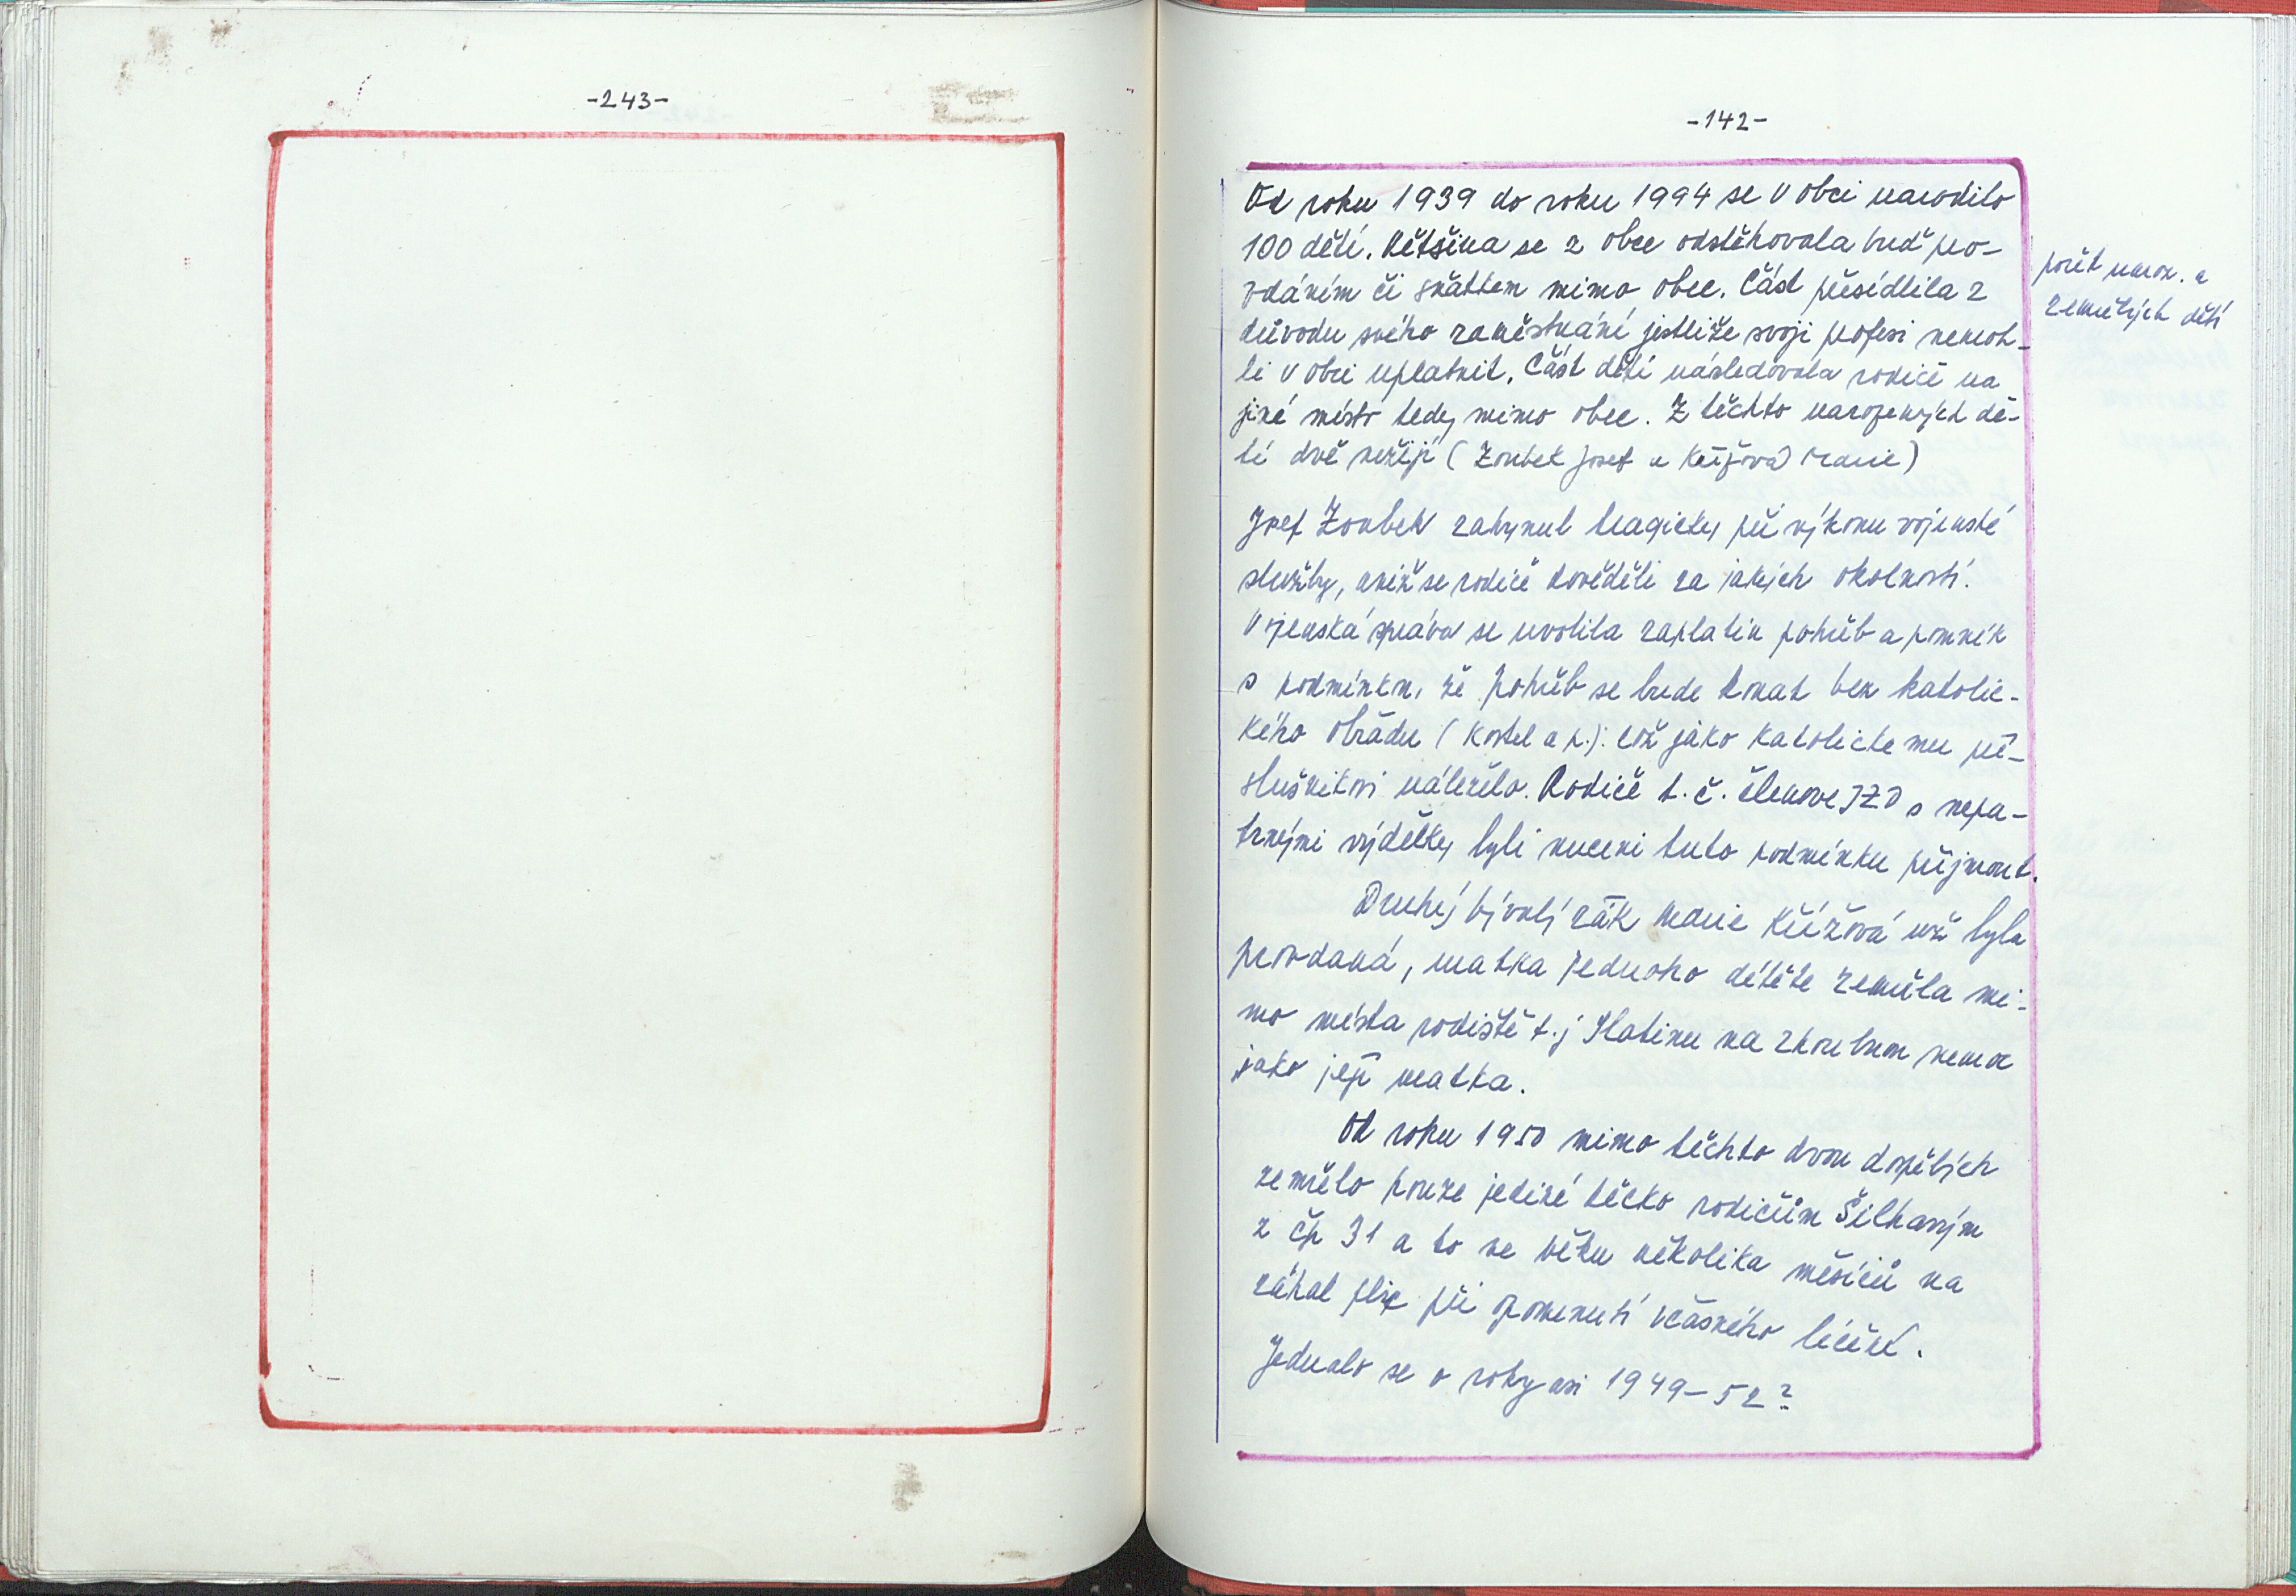 -243-
-142-
Od roku 1939 do roku 1994 se v obci narodilo
100 dětí. Většina se z obce odstěhovala buď pro-
vdáním či sňatkem mimo obec. Část přesídlila z
důvodu svého zaměstnání jestliže svoji profesi nemoh-
li v obci uplatnit. Část dětí následovala rodiče na
jiné místo tedy mimo obec. Z těchto narozených dě-
tí dvě nežijí (Zoubek Josef a Křížová Marie)
počet naroz. a
zemřelých dětí
Josef Zoubek zahynul tragicky při výkonu vojenské
služby, aniž se rodiče dověděli za jakých okolností.
Vojenská správa se uvolila zaplatin pohřeb a pomník
s podmínkou, že pohřeb se bude konat bez katolic-
kého obřadu (kostel a p.): což jako katolickemu pří-
slušníkovi náleželo. Rodiče t.č. členove JZD s nepa-
trnými výdělky byli nuceni tuto podmínku přijmout.
Druhý bývalý žák Marie Křížová už byla
provdaná, matka jednoho dítěte zemřela mi-
mo místa rodiště t.j Slatinu na zhoubnou nemoc
jako její matka.
Od roku 1950 mimo těchto dvou dospělých
zemřelo pouze jediné děcko rodičům Šilhavým
z čp 31 a to ve věku několika měsíců na
zápal plic při opomenutí včasného léčení.
Jednalo se o roky asi 1949-52?